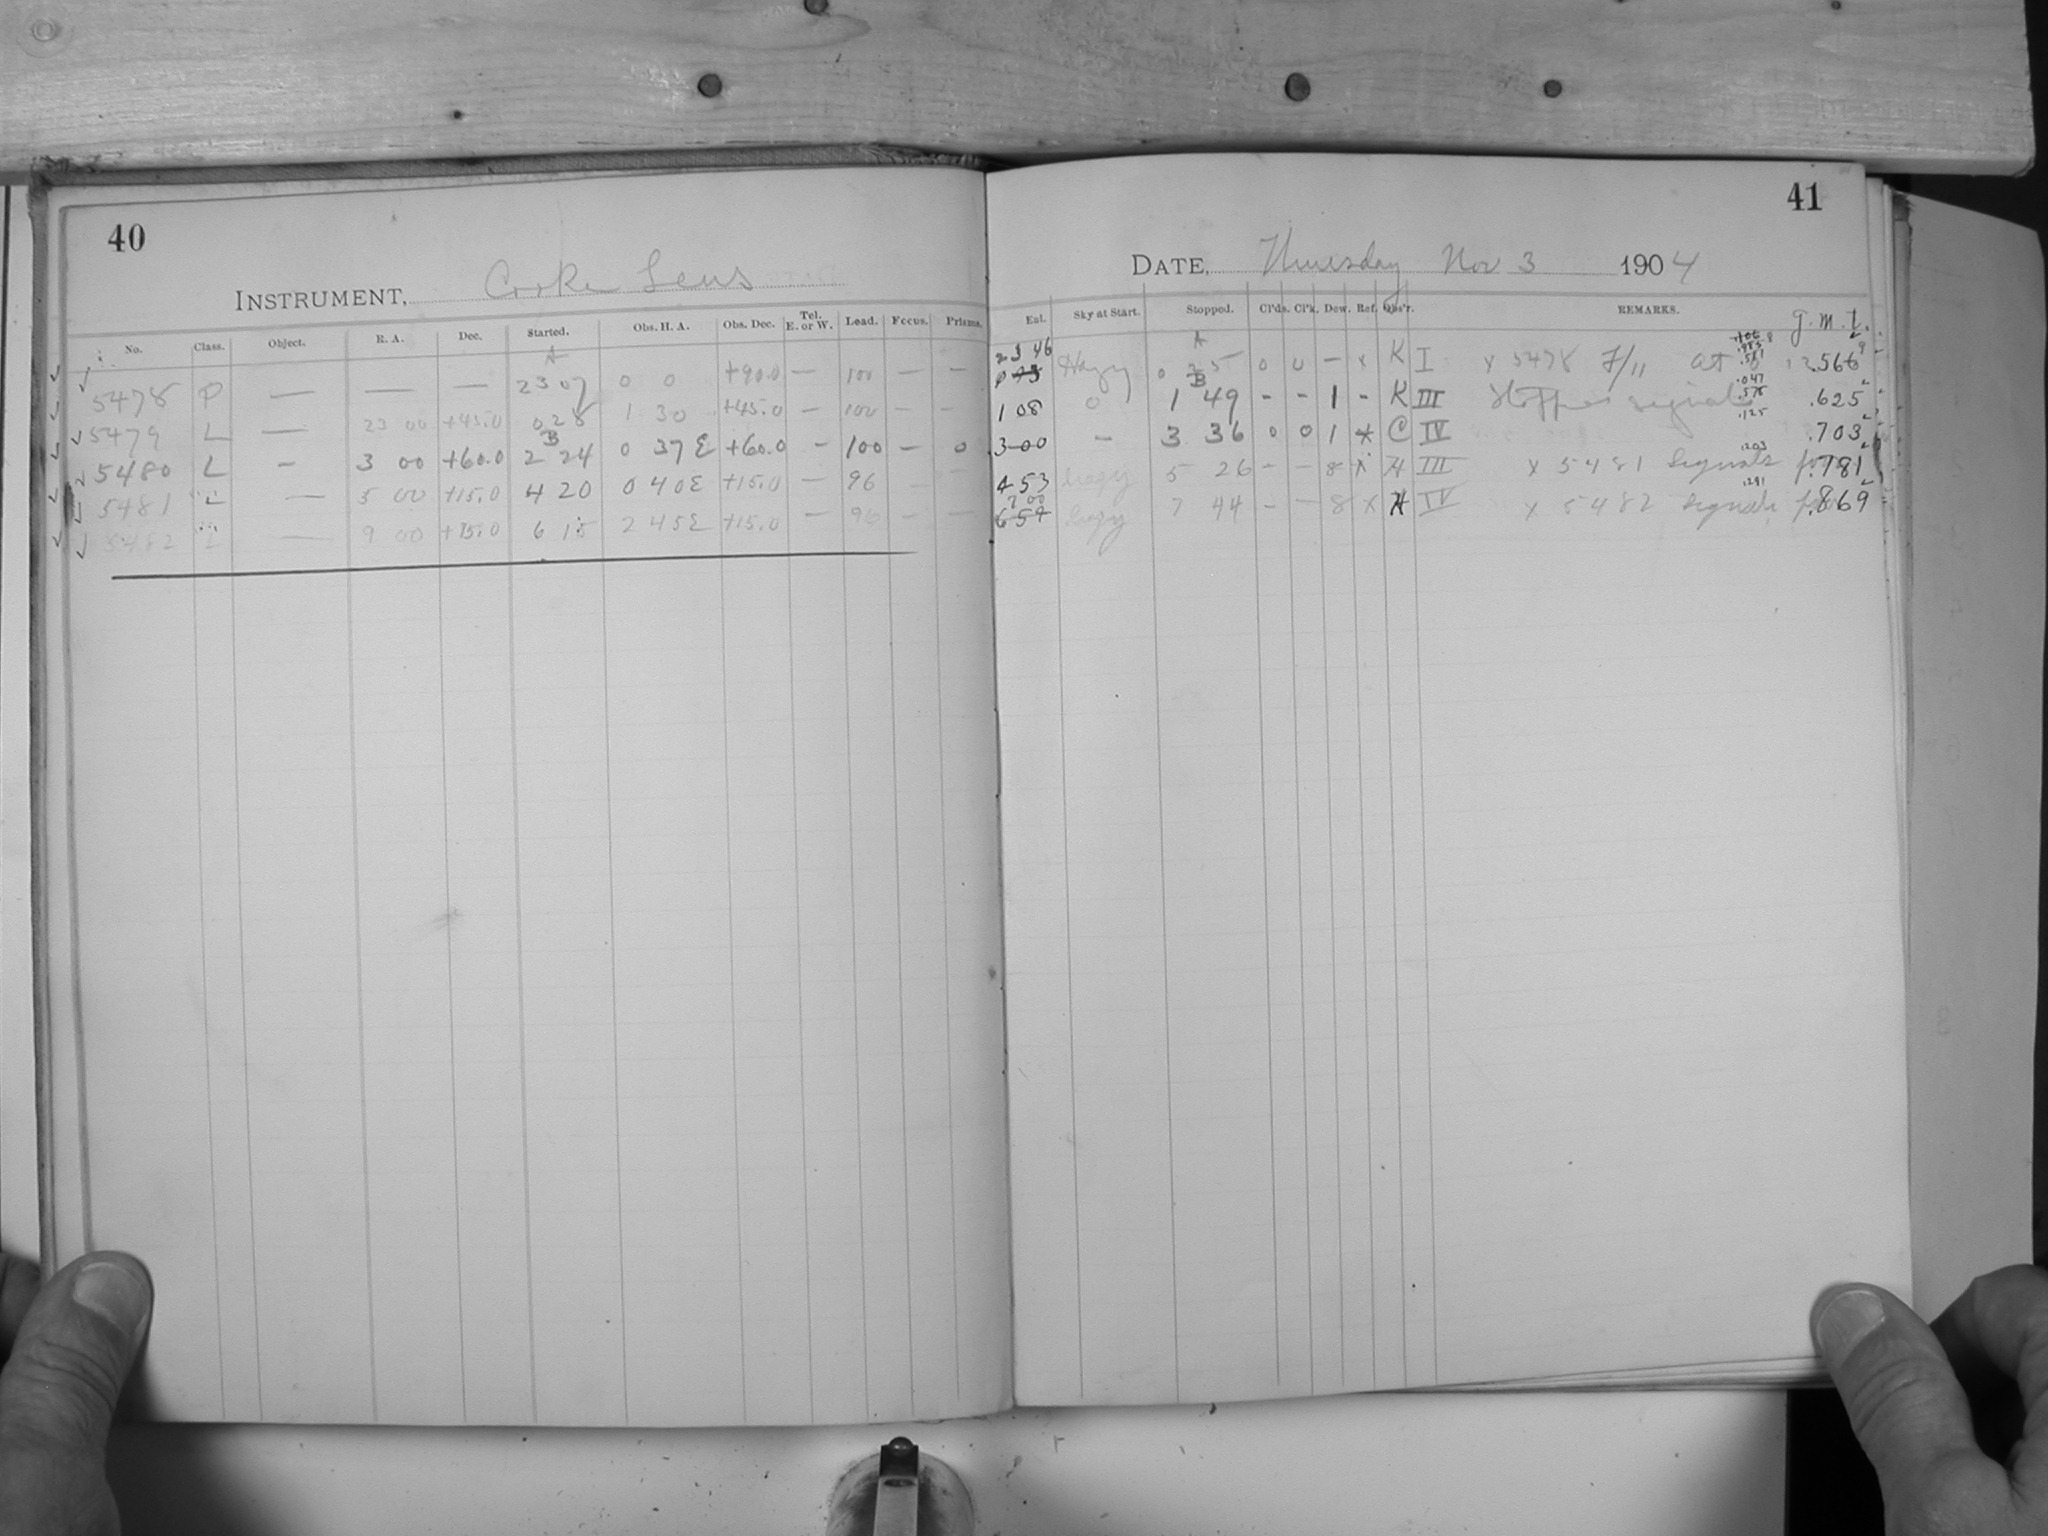 40
INSTRUMENT, Cooke Lens
No. Class. Object. R. A. Dec. Started. Obs. H. A. Obs. Dec. Tel. E. or W. Lead. Focus. Prisms.
A
5478 P — — — 23 07 0 0 +90.0 — 100 — —
5479 L — 23 00 +45.0 0 28 1 30 +45.0 — 100 — —
B
5480 L — 3 00 +60.0 2 24 0 37 E +60.0 — 100 — 0
5481 L — 5 00 +15.0 4 20 0 40 E +15.0 — 96 — —
5482 L — 9 00 +15.0 6 15 2 45 E +15.0 — 96 — —
41
DATE, Thursday Nov 3 1904
Ext. Sky at Start. Stopped. Cl'ds. Cl'k. Dew. Ref. Obs'r. REMARKS. G. M. T.
A
23 46 Hazy 0 25 0 0 — x K I x 5478 F/11 at .566
B
1 08 0 1 49 - - 1 - K III Stopped signal .625
3 00 — 3 36 0 0 1 x C IV .703
4 53 hazy 5 26 - - 8 x H III x 5481 signals .781
7 00
6 59 hazy 7 44 - - 8 x H IV x 5482 signals .869